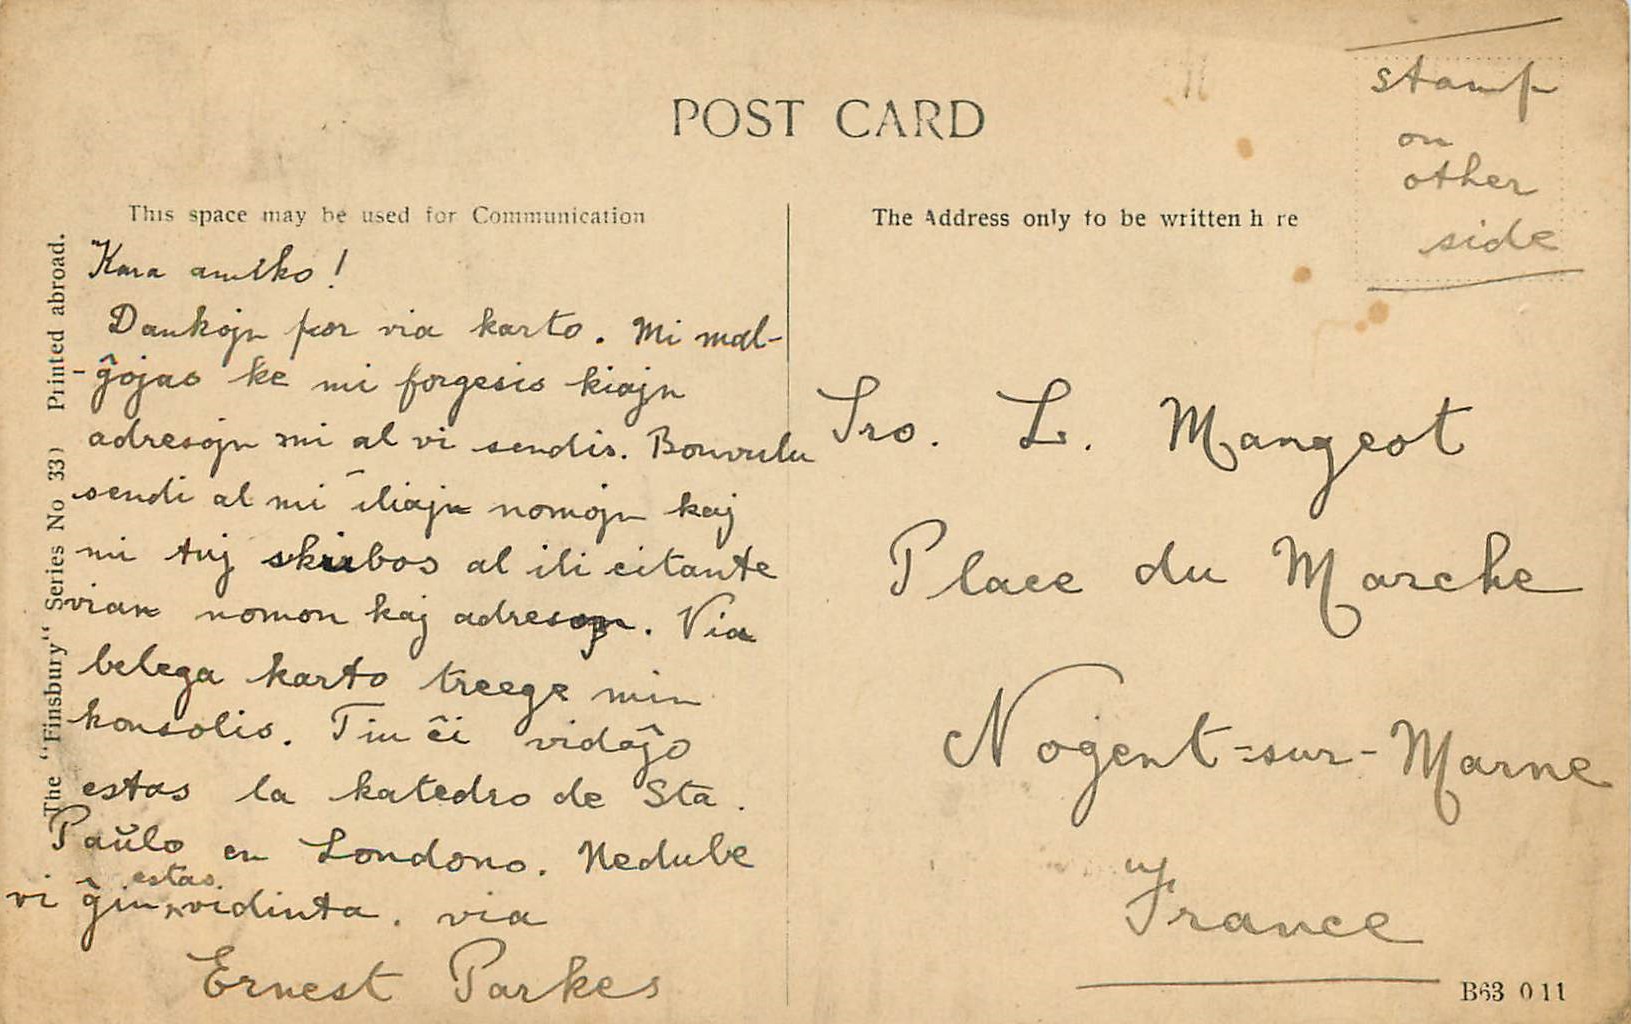 POST CARD
stamp
on
other
side
This space may be used for Communication
The Address only to be written h re
The "Finsbury" Series No 33) Printed abroad.
Kara amiko!
Dankojn por via karto. Mi mal-
-ĝojas ke mi forgesis kiajn
adresojn mi al vi sendis. Bonvulu
sendi al mi iliajn nomojn kaj
mi tuj skribos al ili citante
vian nomon kaj adreson. Via
belega karto treege min
konsolis. Tiu ĉi vidaĵo
estas la katedro de Sta.
Paŭlo en Londono. Nedube
estas.
vi ĝin vidinta. via
Ernest Parkes
Sro. L. Mangeot
Place du Marche
Nogent-sur-Marne
France
B63 011